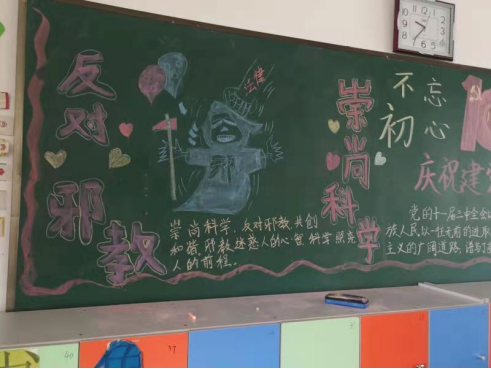 反对邪教
法律
邪
崇尚科学
崇尚科学.反对邪教.共创
和谐.邪教迷惑人的心智.科学照亮
人的前程.
不忘
初心
庆祝建
党的十一届三中全会
族人民以一往无前的进取
主义的广阔道路,谱写
40
37